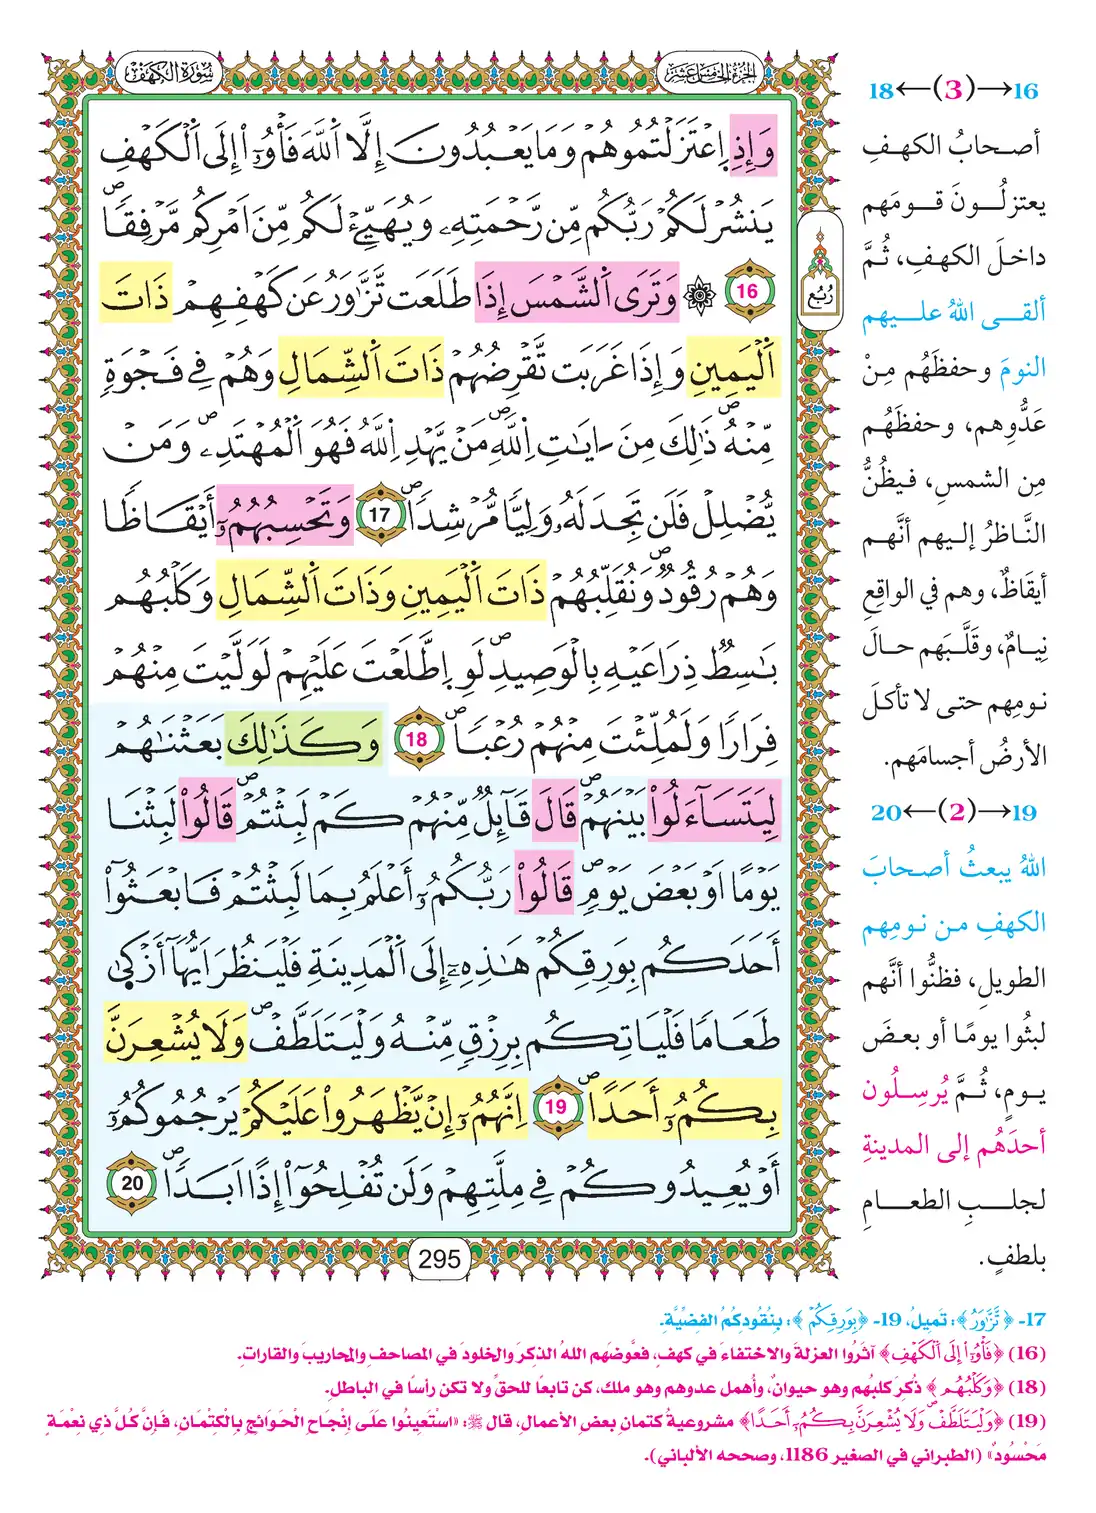 الجزء الخامس عشر
سورة الكهف
وَإِذِ اِ۪عْتَزَلْتُمُوهُمْ وَمَا يَعْبُدُونَ إِلَّا اَ۬للَّهَ فَأْوُۥٓاْ إِلَى اَ۬لْكَهْفِ
يَنشُرْ لَكُمْ رَبُّكُم مِّن رَّحْمَتِهِۦ وَيُهَيِّۓْ لَكُم مِّنَ اَمْرِكُم مَّرْفِقٗاۖ
16 ۞ وَتَرَى اَ۬لشَّمْسَ إِذَا طَلَعَت تَّزَّٰوَرُ عَن كَهْفِهِمْ ذَاتَ
اَ۬لْيَمِينِ وَإِذَا غَرَبَت تَّقْرِضُهُمْ ذَاتَ اَ۬لشِّمَالِ وَهُمْ فِے فَجْوَةٖ
مِّنْهُۖ ذَٰلِكَ مِنَ اٰيَٰتِ اِ۬للَّهِۖ مَنْ يَّهْدِ اِ۬للَّهُ فَهُوَ اَ۬لْمُهْتَدِۦۖ وَمَنْ
يُّضْلِلْ فَلَن تَجِدَ لَهُۥ وَلِيّٗا مُّرْشِدٗاۖ 17 وَتَحْسِبُهُمُۥٓ أَيْقَاظٗا
وَهُمْ رُقُودٞۖ وَنُقَلِّبُهُمْ ذَاتَ اَ۬لْيَمِينِ وَذَاتَ اَ۬لشِّمَالِ وَكَلْبُهُم
بَٰسِطٞ ذِرَاعَيْهِ بِالْوَصِيدِۖ لَوِ اِ۪طَّلَعْتَ عَلَيْهِمْ لَوَلَّيْتَ مِنْهُمْ
فِرَارٗا وَلَمُلِّئْتَ مِنْهُمْ رُعْبٗاۖ 18 وَكَذَٰلِكَ بَعَثْنَٰهُمْ
لِيَتَسَآءَلُواْ بَيْنَهُمْۖ قَالَ قَآئِلٞ مِّنْهُمْ كَمْ لَبِثْتُمْۖ قَالُواْ لَبِثْنَا
يَوْماً اَوْ بَعْضَ يَوْمٖۖ قَالُواْ رَبُّكُمُۥٓ أَعْلَمُ بِمَا لَبِثْتُمْ فَابْعَثُوٓاْ
أَحَدَكُم بِوَرِقِكُمْ هَٰذِهِۦٓ إِلَى اَ۬لْمَدِينَةِ فَلْيَنظُرَ اَيُّهَآ أَزْكَىٰ
طَعَاماٗ فَلْيَاتِكُم بِرِزْقٖ مِّنْهُ وَلْيَتَلَطَّفْۖ وَلَا يُشْعِرَنَّ
بِكُمُۥٓ أَحَداًۖ 19 اِنَّهُمُۥٓ إِنْ يَّظْهَرُواْ عَلَيْكُمْ يَرْجُمُوكُمُۥٓ
أَوْ يُعِيدُوكُمْ فِے مِلَّتِهِمْ وَلَن تُفْلِحُوٓاْ إِذاً اَبَداٗۖ 20
رُبُع
295
16→(3)←18
أصحابُ الكهفِ
يعتزلُونَ قومَهم
داخلَ الكهفِ، ثُمَّ
ألقى اللهُ عليهم
النومَ وحفظَهُم مِنْ
عَدُّوِهم، وحفظَهُم
مِن الشمسِ، فيظُنُّ
النَّاظرُ إليهم أنَّهم
أيقاظٌ، وهم في الواقعِ
نِيامٌ، وقَلَّبَهم حالَ
نومِهم حتى لا تأكلَ
الأرضُ أجسامَهم.
19→(2)←20
اللهُ يبعثُ أصحابَ
الكهفِ من نومِهم
الطويلِ، فظنُّوا أنَّهم
لبثُوا يومًا أو بعضَ
يومٍ، ثُمَّ يُرسِلُون
أحدَهُم إلى المدينةِ
لجلبِ الطعامِ
بلطفٍ.
17- ﴿تَّزَّٰوَرُ﴾: تَميلُ، 19- ﴿بِوَرِقِكُمْ﴾: بِنُقُودِكُمُ الفِضِّيَّةِ.
(16) ﴿فَأْوُۥٓاْ إِلَى اَ۬لْكَهْفِ﴾ آثَرُوا العزلةَ والاختفاءَ في كهفٍ، فعَّوضَهم اللهُ الذكرَ والخلودَ في المصاحفِ والمحاريبِ والقارات.
(18) ﴿وَكَلْبُهُم﴾ ذُكرَ كلبُهم وهو حيوانٌ، وأُهمل عدوهم وهو ملك، كن تابعًا للحقِّ ولا تكن رأسًا في الباطلِ.
(19) ﴿وَلْيَتَلَطَّفْۖ وَلَا يُشْعِرَنَّ بِكُمُۥٓ أَحَدًا﴾ مشروعيةُ كتمانِ بعضِ الأعمالِ، قال ﷺ: «اسْتَعِينُوا عَلَى إِنْجَاحِ الْحَوَائِجِ بِالْكِتْمَانِ، فَإِنَّ كُلَّ ذِي نِعْمَةٍ
مَحْسُودٌ» (الطبراني في الصغير 1186، وصححه الألباني).